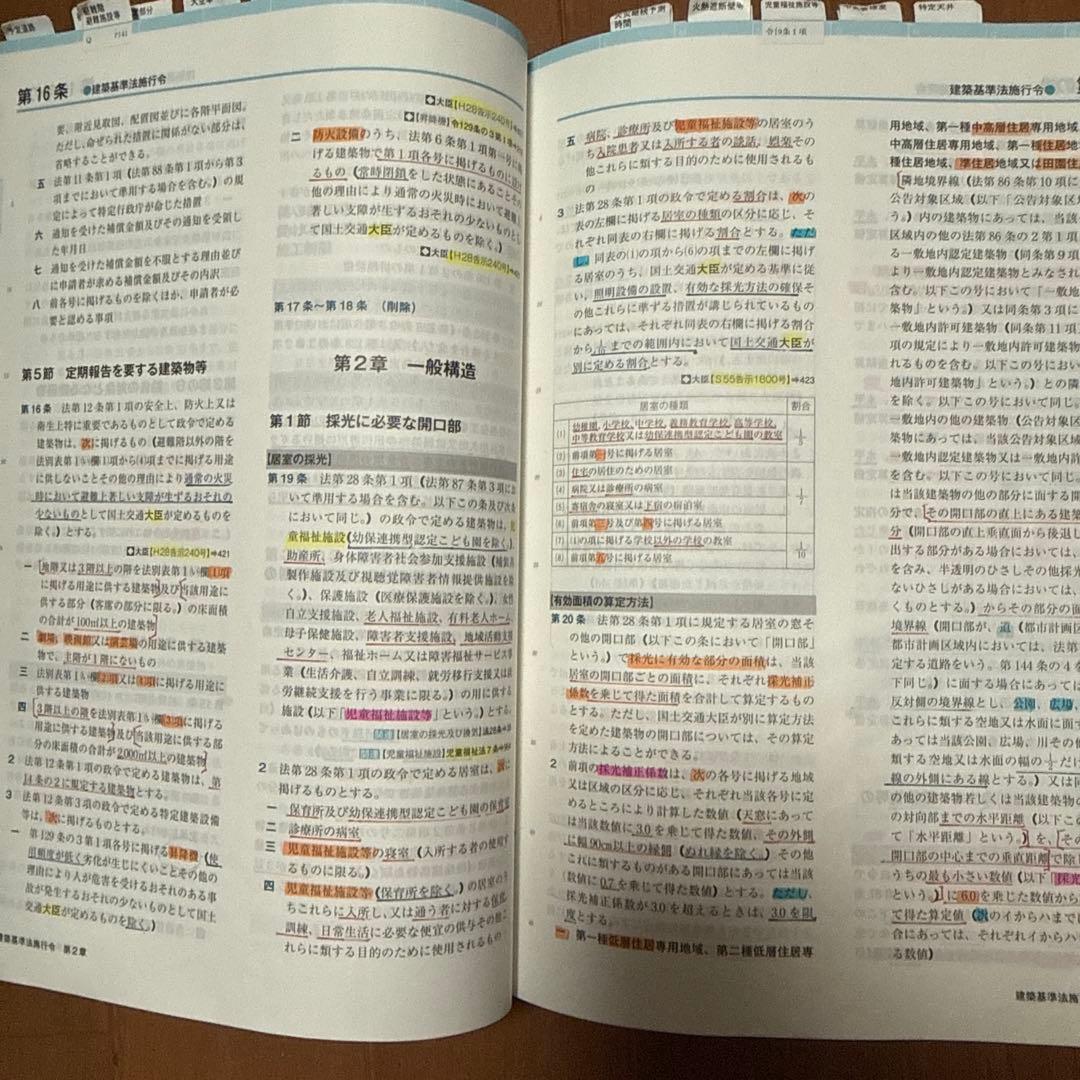 避難階
避難施設等
火災継続予測
時間
火熱遮断壁等
児童福祉施設等
特定天井
令19条1項
第16条 ●建築基準法施行令
要、附近見取図、配置図並びに各階平面図。
ただし、命ぜられた措置に関係がない部分は、
省略することができる。
五 法第11条第1項(法第88条第1項から第3
項までにおいて準用する場合を含む。)の規
定によって特定行政庁が命じた措置
六 通知を受けた補償金額及びその通知を受領し
た年月日
七 通知を受けた補償金額を不服とする理由並び
に申請者が求める補償金額及びその内訳
八 前各号に掲げるものを除くほか、申請者が必
要と認める事項
第5節 定期報告を要する建築物等
第16条 法第12条第1項の安全上、防火上又は
衛生上特に重要であるものとして政令で定める
建築物は、次に掲げるもの(避難階以外の階を
法別表第1い欄(1)項から(4)項までに掲げる用途
に供しないことその他の理由により通常の火災
時において避難上著しい支障が生ずるおそれの
少ないものとして国土交通大臣が定めるものを
除く。)とする。
◆大臣【H28告示240号】⇒421
一 地階又は3階以上の階を法別表第1い欄(1)項
に掲げる用途に供する建築物及び当該用途に
供する部分(客席の部分に限る。)の床面積
の合計が100㎡以上の建築物
二 劇場、映画館又は演芸場の用途に供する建築
物で、主階が1階にないもの
三 法別表第1い欄(2)項又は(4)項に掲げる用途に
供する建築物
四 3階以上の階を法別表第1い欄(3)項に掲げる
用途に供する建築物及び当該用途に供する部
分の床面積の合計が2,000㎡以上の建築物
2 法第12条第1項の政令で定める建築物は、第
14条の2に規定する建築物とする。
3 法第12条第3項の政令で定める特定建築設備
等は、次に掲げるものとする。
一 第129条の3第1項各号に掲げる昇降機(使
用頻度が低く劣化が生じにくいことその他の
理由により人が危害を受けるおそれのある事
故が発生するおそれの少ないものとして国土
交通大臣が定めるものを除く。)
建築基準法施行令 第2章
◆大臣【H28告示240号】
◆【昇降機】令129条の3第1項
二 防火設備のうち、法第6条第1項第一号に掲
げる建築物で第1項各号に掲げるものに設け
るもの(常時閉鎖をした状態にあることその
他の理由により通常の火災時において避難上
著しい支障が生ずるおそれの少ないものとし
て国土交通大臣が定めるものを除く。)
◆大臣【H28告示240号】⇒421
第17条～第18条 (削除)
第2章 一般構造
第1節 採光に必要な開口部
【居室の採光】
第19条 法第28条第1項(法第87条第3項にお
いて準用する場合を含む。以下この条及び次条
において同じ。)の政令で定める建築物は、児
童福祉施設(幼保連携型認定こども園を除く。)、
助産所、身体障害者社会参加支援施設(補装具
製作施設及び視聴覚障害者情報提供施設を除
く。)、保護施設(医療保護施設を除く。)、女性
自立支援施設、老人福祉施設、有料老人ホーム、
母子保健施設、障害者支援施設、地域活動支援
センター、福祉ホーム又は障害福祉サービス事
業(生活介護、自立訓練、就労移行支援又は就
労継続支援を行う事業に限る。)の用に供する
施設(以下「児童福祉施設等」という。)とする。
関連【居室の採光及び換気】法28条
関連【児童福祉施設】児童福祉法7条
2 法第28条第1項の政令で定める居室は、次に
掲げるものとする。
一 保育所及び幼保連携型認定こども園の保育室
二 診療所の病室
三 児童福祉施設等の寝室(入所する者の使用す
るものに限る。)
四 児童福祉施設等(保育所を除く。)の居室のう
ちこれらに入所し、又は通う者に対する保育、
訓練、日常生活に必要な便宜の供与その他こ
れらに類する目的のために使用されるもの
五 病院、診療所及び児童福祉施設等の居室のう
ち入院患者又は入所する者の談話、娯楽その
他これらに類する目的のために使用されるも
の
3 法第28条第1項の政令で定める割合は、次の
表の左欄に掲げる居室の種類の区分に応じ、そ
れぞれ同表の右欄に掲げる割合とする。ただ
し、同表の(1)の項から(6)の項までの左欄に掲げ
る居室のうち、国土交通大臣が定める基準に従
い、照明設備の設置、有効な採光方法の確保そ
の他これらに準ずる措置が講じられているもの
にあっては、それぞれ同表の右欄に掲げる割合
から1/10までの範囲内において国土交通大臣が
別に定める割合とする。
◆大臣【S55告示1800号】⇒423
居室の種類 割合
(1) 幼稚園、小学校、中学校、義務教育学校、高等学校、
中等教育学校又は幼保連携型認定こども園の教室 1/5
(2) 前項第一号に掲げる居室
(3) 住宅の居住のための居室
(4) 病院又は診療所の病室 1/7
(5) 寄宿舎の寝室又は下宿の宿泊室
(6) 前項第三号及び第四号に掲げる居室
(7) (1)の項に掲げる学校以外の学校の教室 1/10
(8) 前項第五号に掲げる居室
【有効面積の算定方法】
第20条 法第28条第1項に規定する居室の窓そ
の他の開口部(以下この条において「開口部」
という。)で採光に有効な部分の面積は、当該
居室の開口部ごとの面積に、それぞれ採光補正
係数を乗じて得た面積を合計して算定するもの
とする。ただし、国土交通大臣が別に算定方法
を定めた建築物の開口部については、その算定
方法によることができる。
2 前項の採光補正係数は、次の各号に掲げる地域
又は区域の区分に応じ、それぞれ当該各号に定
めるところにより計算した数値(天窓にあって
は当該数値に3.0を乗じて得た数値、その外側
に幅90cm以上の縁側(ぬれ縁を除く。)その他
これに類するものがある開口部にあっては当該
数値に0.7を乗じて得た数値)とする。ただし、
採光補正係数が3.0を超えるときは、3.0を限
度とする。
一 第一種低層住居専用地域、第二種低層住居専
建築基準法施行令●
用地域、第一種中高層住居専用地域
中高層住居専用地域、第一種住居
種住居地域、準住居地域又は田園住
隣地境界線(法第86条第10項に
公告対象区域(以下「公告対象区
う。)内の建築物にあっては、当該
区域内の他の法第86条の2第1項
る一敷地内認定建築物(同条第9項
より一敷地内認定建築物とみなされ
含む。以下この号において「一敷地
築物」という。)又は同条第3項に
一敷地内許可建築物(同条第11項
項の規定により一敷地内許可建築
れるものを含む。以下この号におい
地内許可建築物」という。)との隣
を除く。以下この号において同じ。
一敷地内の他の建築物(公告対象区
物にあっては、当該公告対象区域
一敷地内認定建築物又は一敷地内許
を含む。以下この号において同じ。
は当該建築物の他の部分に面する開
分で、その開口部の直上にある建築
分(開口部の直上垂直面から後退し
出する部分がある場合においては、
を含み、半透明のひさしその他採光
ないひさしがある場合においては
くものとする。)からその部分の面
境界線(開口部が、道(都市計画区
都市計画区域内においては、法第
定する道路をいう。第144条の4を
下同じ。)に面する場合にあっては
反対側の境界線とし、公園、広場、
これらに類する空地又は水面に面す
っては当該公園、広場、川その他
類する空地又は水面の幅の1/2だけ
線の外側にある線とする。)又は同
の他の建築物若しくは当該建築物の
の対向部までの水平距離(以下この
て「水平距離」という。)を、その
開口部の中心までの垂直距離で除し
うちの最も小さい数値(以下「採光
という。)に6.0を乗じた数値
て得た算定値(次のイからハまで
合にあっては、それぞれイからハ
る数値)
建築基準法施